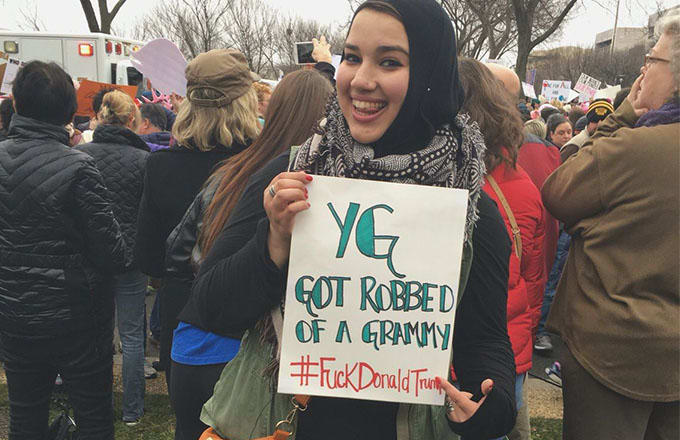 YG
GOT ROBBED
OF A GRAMMY
#FUCKDONALDTRUMP